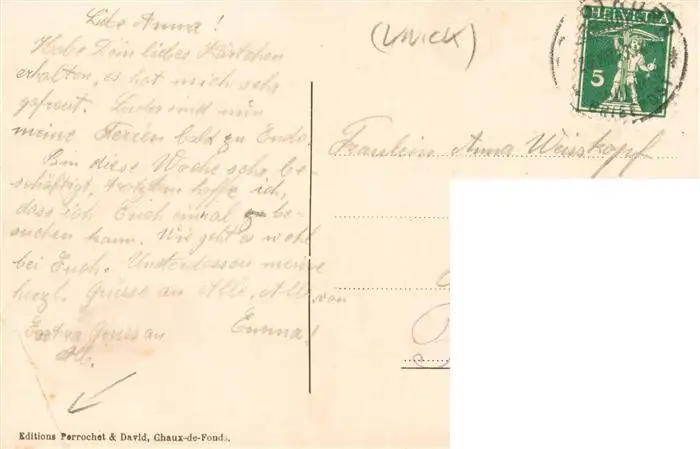 Liebe Anna!
Habe Dein liebes Kärtchen
erhalten, es hat mich sehr
gefreut. Leider sind nun
meine Ferien bald zu Ende.
Bin diese Woche sehr be-
schäftigt, trotzdem hoffe ich,
dass ich Euch einmal be-
suchen kann. Wie geht es wohl
bei Euch. Unterdessen meine
herzl. Grüsse an Alle, Alle, von
Emma!
Extra Gruss an
(UNICK)
HELVETIA
5
Fräulein Anna Weisskopf
Editions Perrochet & David, Chaux-de-Fonds.